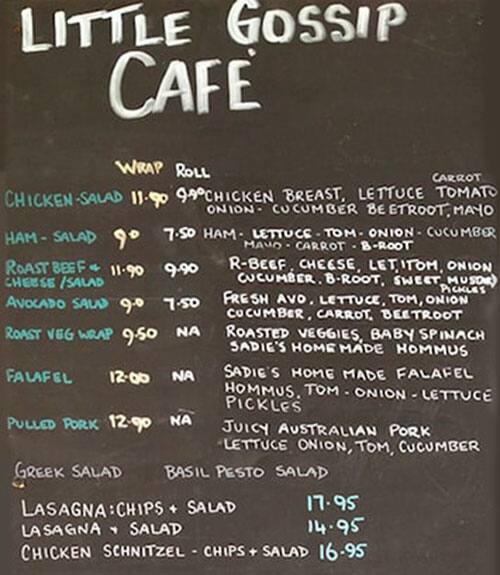 LITTLE GOSSIP
CAFE
WRAP ROLL
CARROT
CHICKEN-SALAD 11-90 9-90 CHICKEN BREAST, LETTUCE TOMATO
ONION - CUCUMBER BEETROOT, MAYO
HAM - SALAD 9.0 7-50 HAM - LETTUCE - TOM - ONION - CUCUMBER
MAYO - CARROT - B-ROOT
ROAST BEEF + 11-90 9-90 R-BEEF, CHEESE, LET, TOM, ONION
CHEESE/SALAD CUCUMBER, B-ROOT, SWEET MUSTARD
PICKLES
AVOCADO SALAD 9.0 7-50 FRESH AVO, LETTUCE, TOM, ONION
CUCUMBER, CARROT, BEETROOT
ROAST VEG WRAP 9.50 NA ROASTED VEGGIES, BABY SPINACH
SADIE'S HOME MADE HOMMUS
FALAFEL 12-00 NA SADIE'S HOME MADE FALAFEL
HOMMUS, TOM - ONION - LETTUCE
PICKLES
PULLED PORK 12-90 NA JUICY AUSTRALIAN PORK
LETTUCE ONION, TOM, CUCUMBER
GREEK SALAD BASIL PESTO SALAD
LASAGNA: CHIPS + SALAD 17-95
LASAGNA + SALAD 14-95
CHICKEN SCHNITZEL - CHIPS + SALAD 16-95